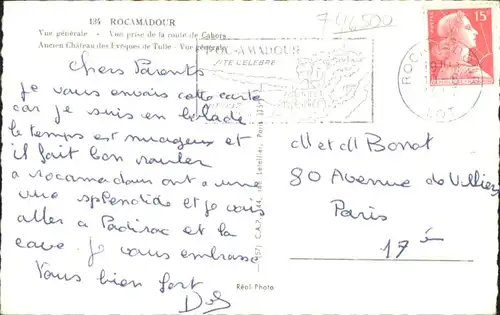 134 ROCAMADOUR
Vue générale - Vue prise de la route de Cahors
Ancien Château des Evêques de Tulle - Vue générale
744500
ROCAMADOUR
SITE CELEBRE
15
ROCAMADOUR
LOT
Chers Parents
Je vous envois cette carte
car je suis en balade
le temps est nuageux et
il fait bon rouler
a rocamadour ont a une
vue splendide et je vais
aller a Padirac et la
cave. Je vous embrasse
Vous bien fort
M et M Bonat
80 Avenue de Villiers
Paris
17 è
Réal-Photo